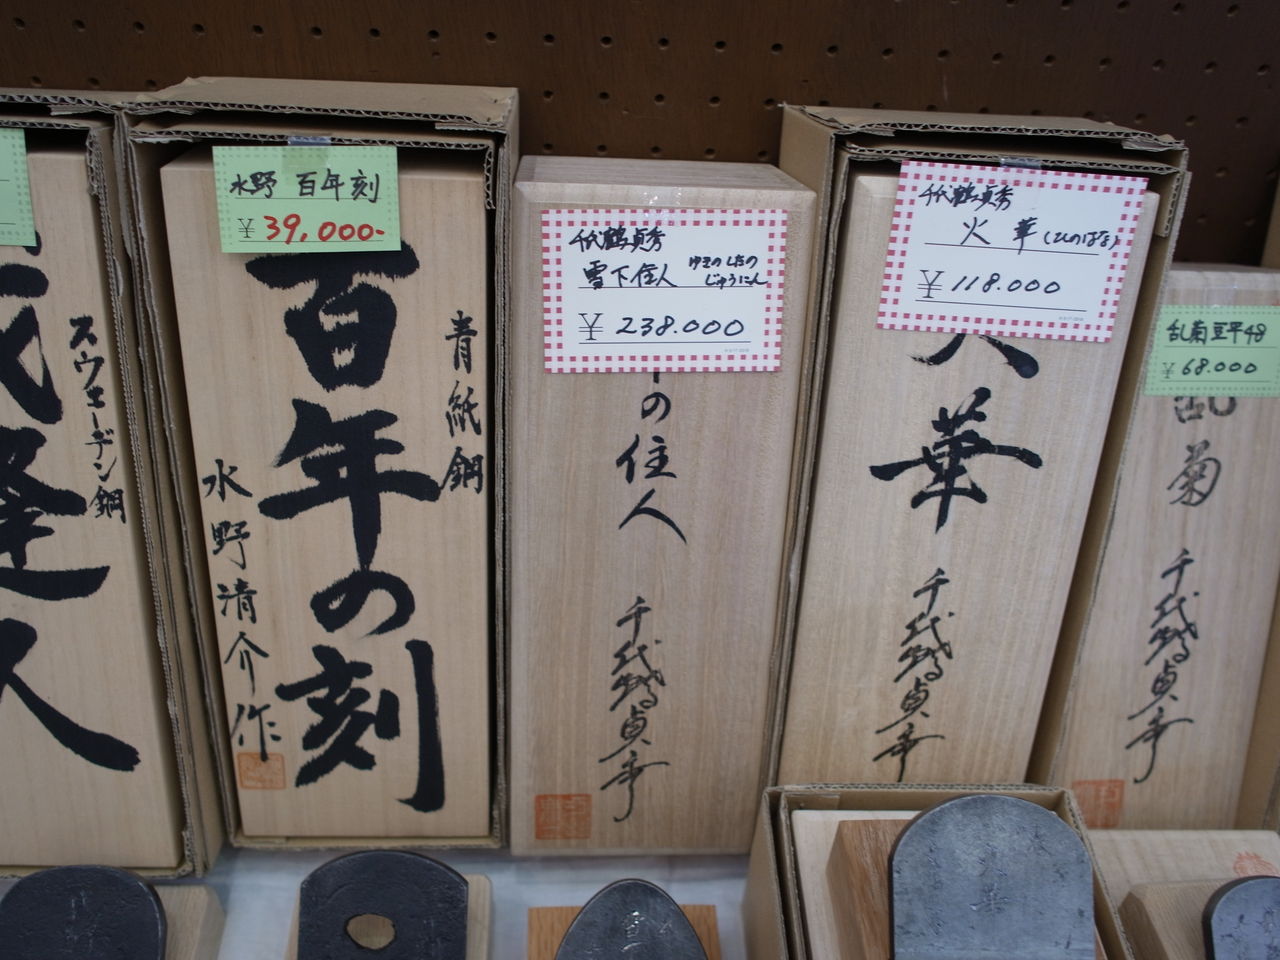 スウェーデン鋼
水野 百年刻
¥39,000-
百年の刻
青紙鋼
水野清介作
千代鶴貞秀
雪下住人
ゆきのしたの
じゅうにん
¥238.000
の住人
千代鶴貞秀
千代鶴貞秀
火華(ひのはな)
¥118.000
火華
千代鶴貞秀
乱菊豆平48
¥68.000
乱菊
千代鶴貞秀